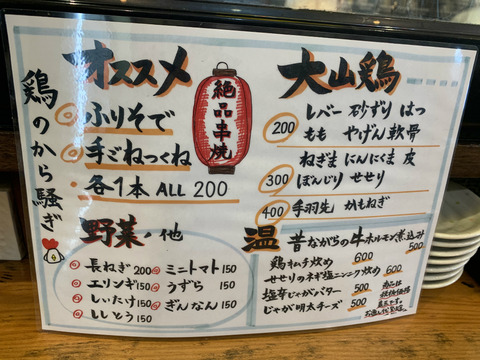 鶏のから騒ぎ
オススメ
ふりそで
手ごねつくね
各1本 ALL 200
絶品串焼
大山鶏
200
レバー 砂ずり はつ
もも やげん軟骨
300
ねぎま にんにくま 皮
ぼんじり せせり
400 手羽先 かもねぎ
野菜・他
長ねぎ 200
エリンギ 150
しいたけ 150
ししとう 150
ミニトマト 150
うずら 150
ぎんなん 150
温
昔ながらの牛ホルモン煮込み
500
鶏キムチ炒め 600
せせりのネギ塩ニンニク炒め 600
塩辛じゃがバター 500
じゃが明太チーズ 500
商品は
税抜価格